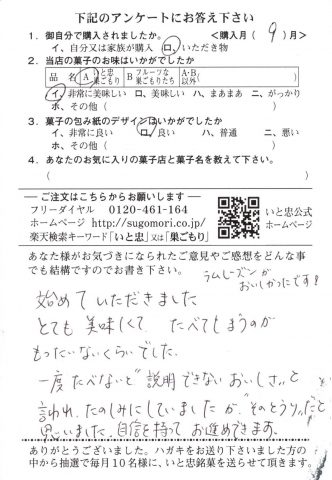 下記のアンケートにお答え下さい
1. 御自分で購入されましたか。 <購入月( 9 )月>
イ、自分又は家族が購入 ロ、いただき物
2. 当店の菓子のお味はいかがでしたか
品名 A いと忠巣ごもり B フルーツな巣ごもりたち A・B以外( )
イ、非常に美味しい ロ、美味しい ハ、まあまあ ニ、がっかり
ホ、その他( )
3. 菓子の包み紙のデザインはいかがでしたか
イ、非常に良い ロ、良い ハ、普通 ニ、悪い
ホ、その他( )
4. あなたのお気に入りの菓子店と菓子名を教えて下さい。
( )
ご注文はこちらからお願いします
フリーダイヤル 0120-461-164
ホームページ http://sugomori.co.jp/
楽天検索キーワード「いと忠」又は「巣ごもり」
いと忠公式
ホームページ
あなた様がお気づきになられたご意見やご感想をどんな事
でも結構ですのでお書き下さい。
ラムレーズンが
おいしかったです!
始めていただきました
とても美味しくて、たべてしまうのが
もったいないくらいでした。
一度たべないと"説明できないおいしさ"と
言われ、たのしみにしていましたが、"そのとうり"だと
思いました。自信を持ってお進めできます。
ありがとうございました。ハガキをお送り下さいました方の
中から抽選で毎月10名様に、いと忠銘菓を送らせて頂きます。